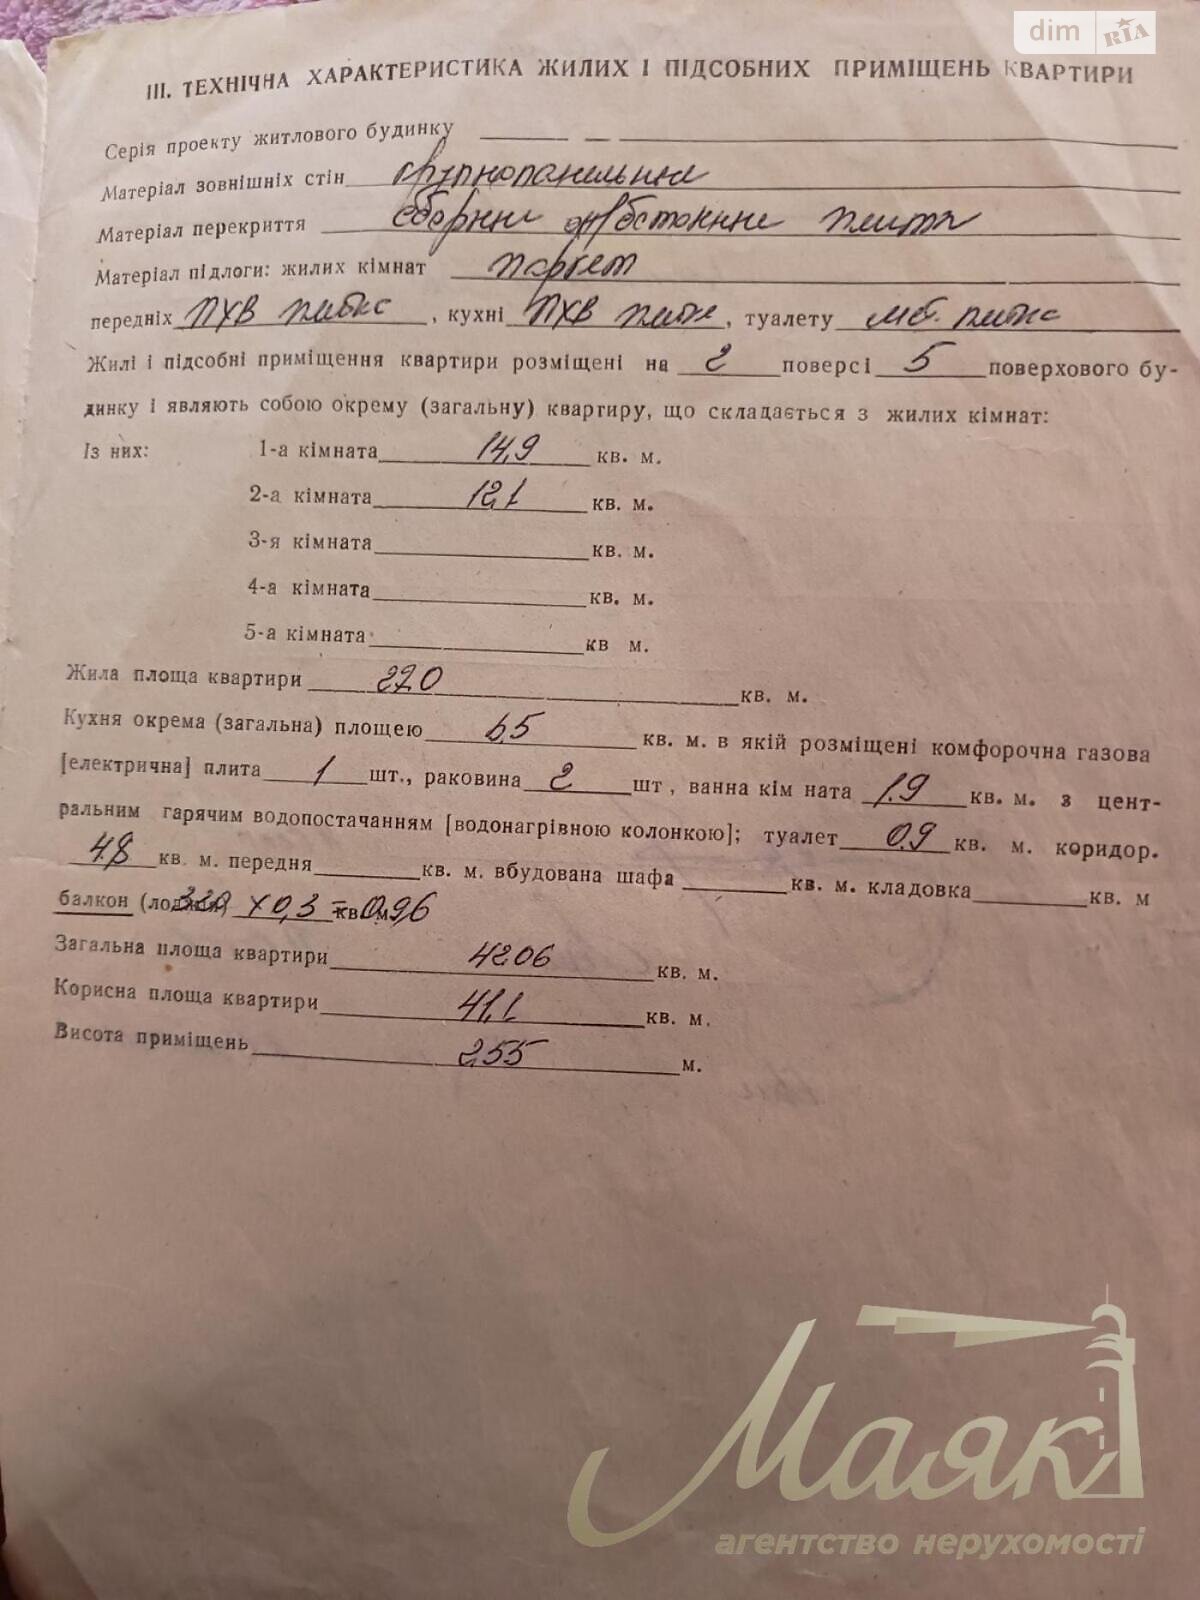 dim RIA
III. ТЕХНІЧНА ХАРАКТЕРИСТИКА ЖИЛИХ І ПІДСОБНИХ ПРИМІЩЕНЬ КВАРТИРИ
Серія проекту житлового будинку —
Матеріал зовнішніх стін крупнопанельние
Матеріал перекриття сборние плити
Матеріал підлоги: жилих кімнат паркет
передніх ПХВ плитка, кухні ПХВ плитк, туалету мет. плитка
Жилі і підсобні приміщення квартири розміщені на 2 поверсі 5 поверхового бу-
динку і являють собою окрему (загальну) квартиру, що складається з жилих кімнат:
Із них: 1-а кімната 14,9 кв. м.
2-а кімната 12,1 кв. м.
3-я кімната кв. м.
4-а кімната кв. м.
5-а кімната кв м.
Жила площа квартири 27,0 кв. м.
Кухня окрема (загальна) площею 6,5 кв. м. в якій розміщені комфорочна газова
[електрична] плита 1 шт., раковина 2 шт, ванна кім ната 1,9 кв. м. з цент-
ральним гарячим водопостачанням [водонагрівною колонкою]; туалет 0,9 кв. м. коридор.
4,8 кв. м. передня кв. м. вбудована шафа кв. м. кладовка кв. м
балкон (лоджія) 3,20 x 0,3 = 0,96 кв. м.
Загальна площа квартири 42,06 кв. м.
Корисна площа квартири 41,1 кв. м.
Висота приміщень 2,55 м.
Маяк
агентство нерухомості